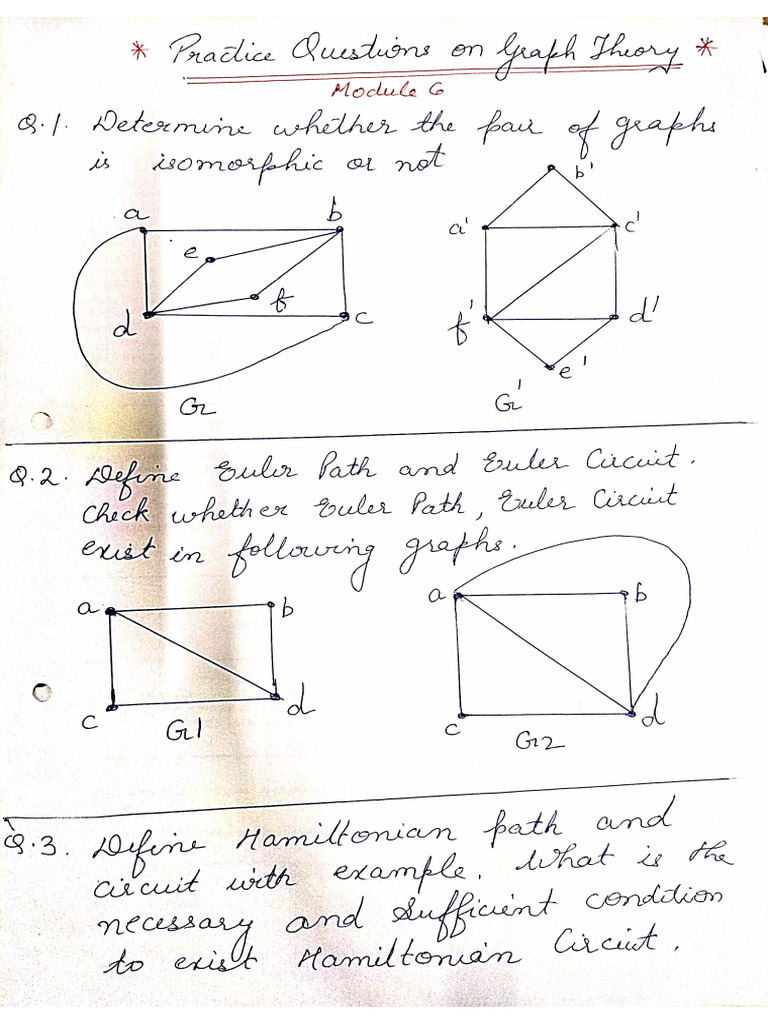 * Practice Questions on Graph Theory *
Module 6
Q.1. Determine whether the pair of graphs
is isomorphic or not
a b
e
f
d c
G
b'
a' c'
f' d'
e'
G'
Q.2. Define Euler Path and Euler Circuit.
Check whether Euler Path, Euler Circuit
exist in following graphs.
a b
c d
G1
a b
c d
G2
Q.3. Define Hamiltonian path and
circuit with example. What is the
necessary and Sufficient condition
to exist Hamiltonian Circuit.